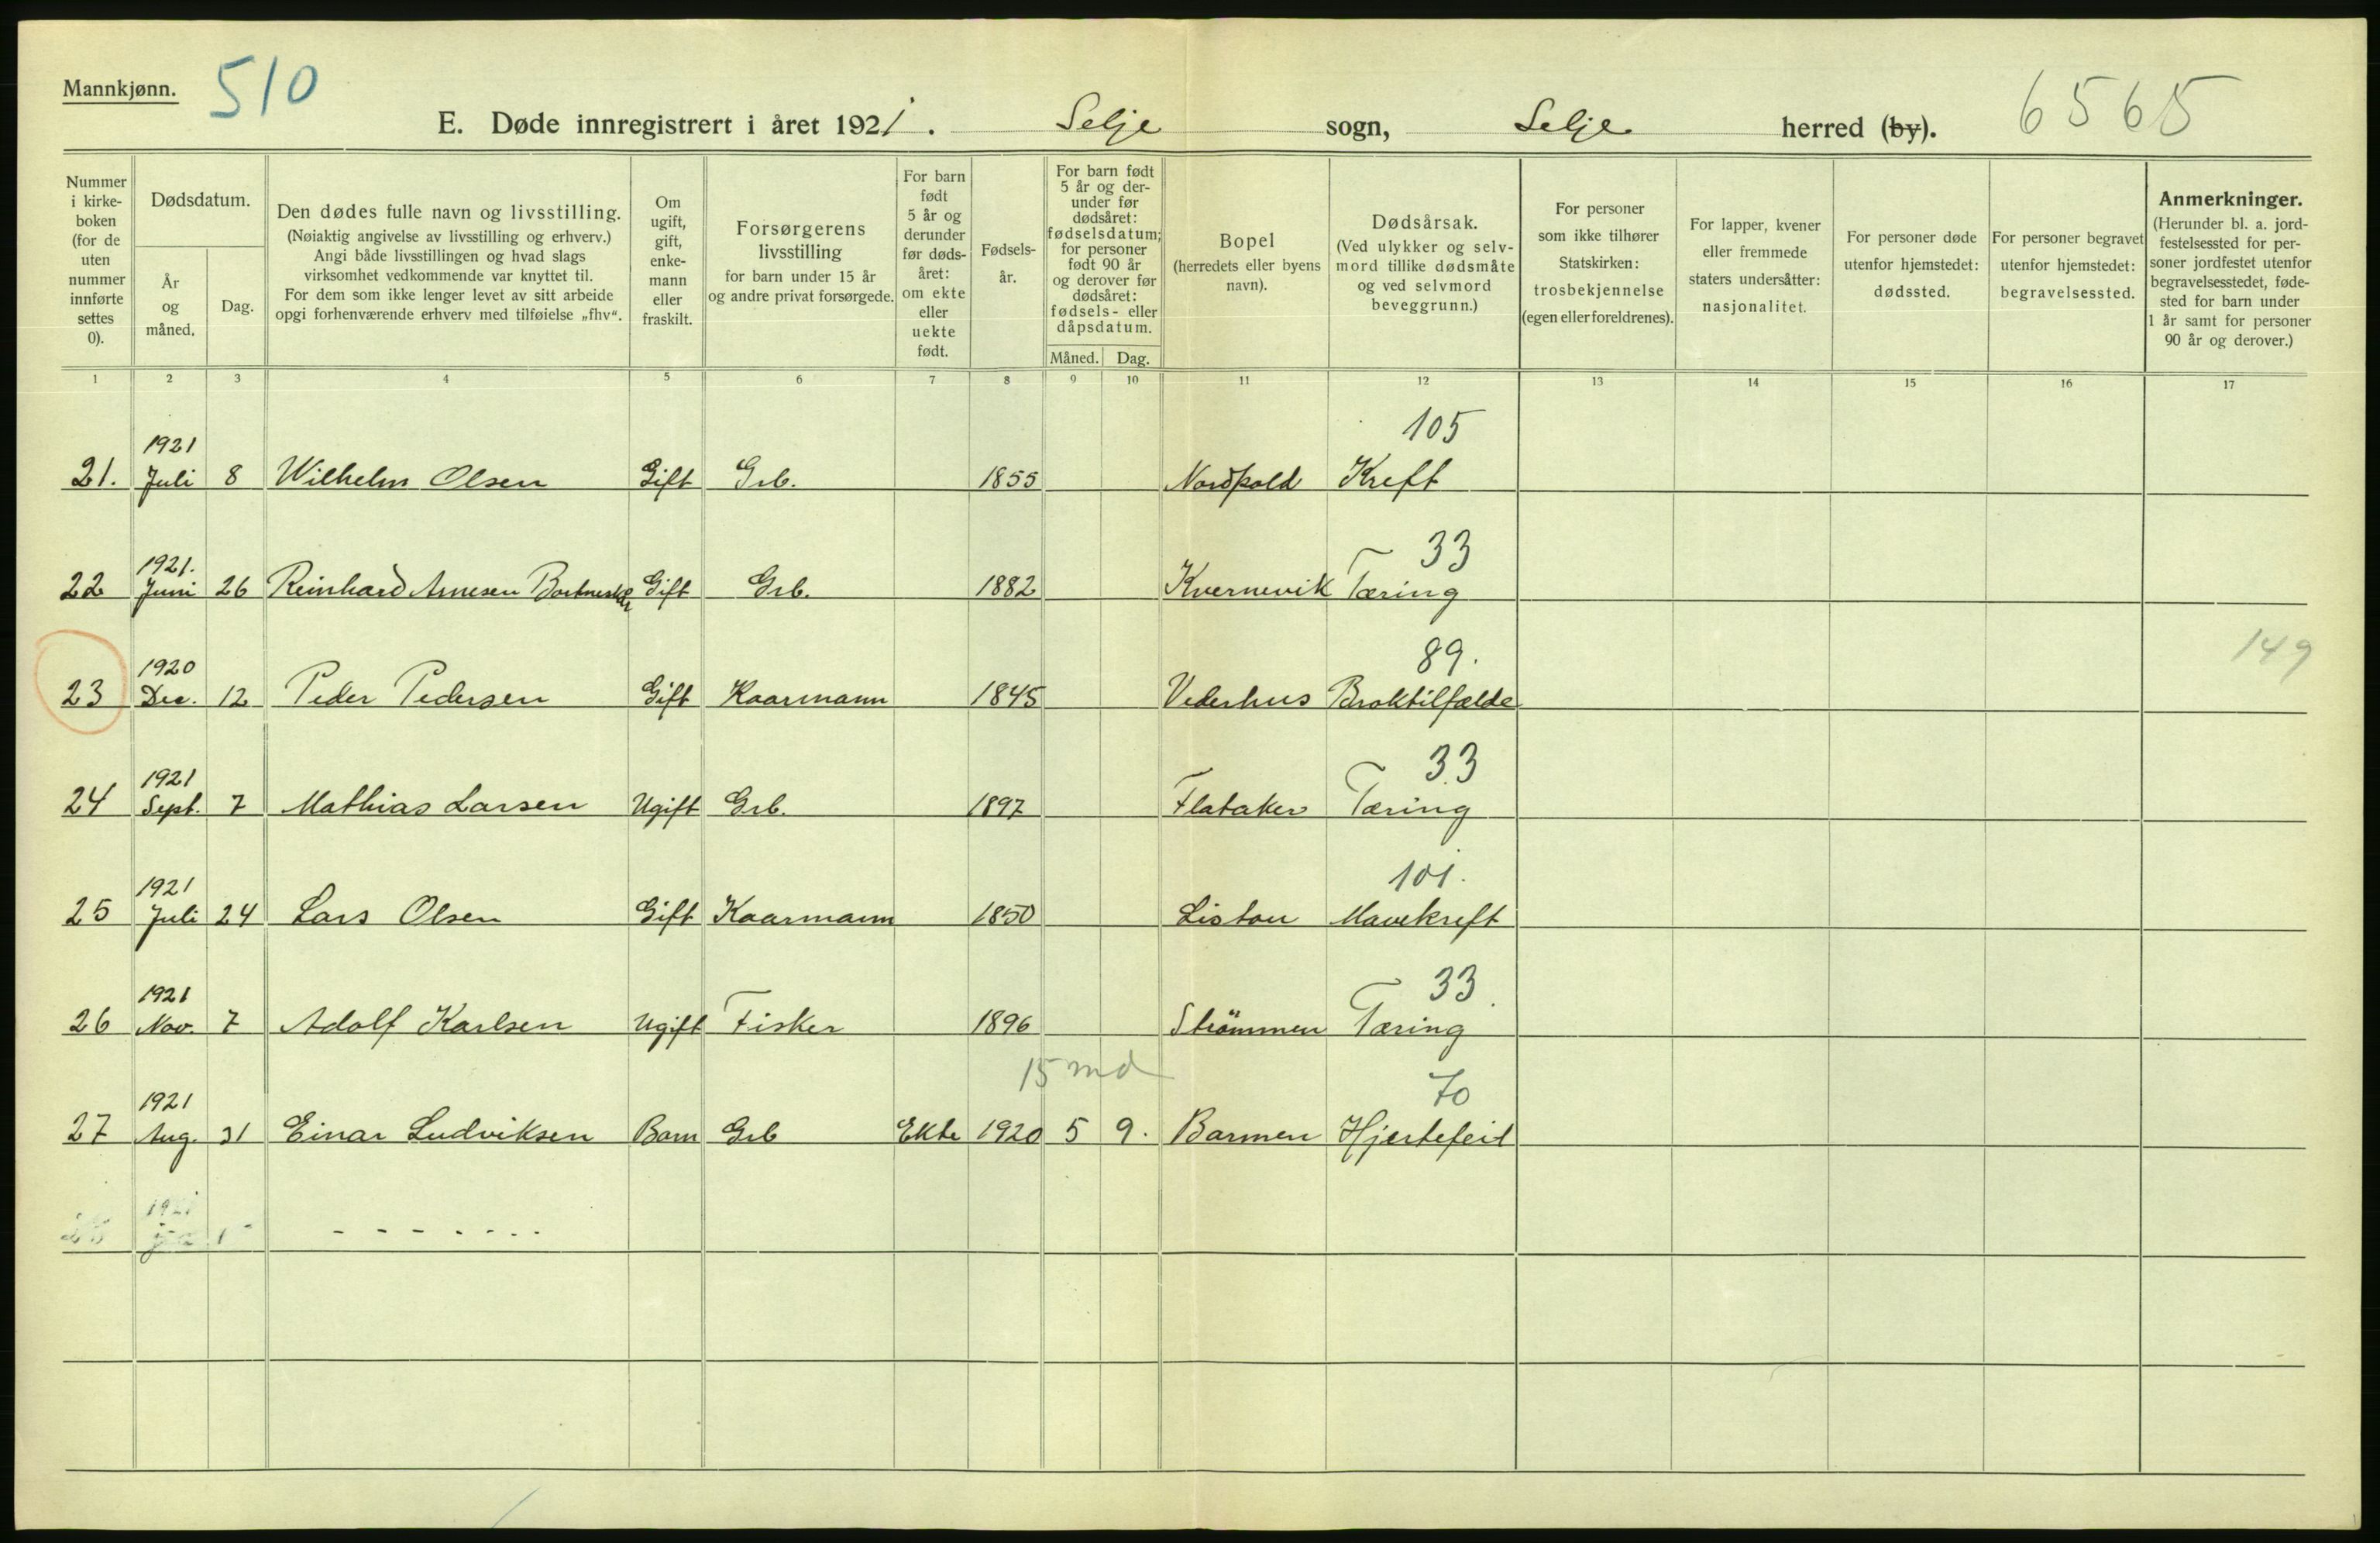 Mannkjønn.
510
E. Døde innregistrert i året 1921. Selje sogn, Selje herred (by).
6565
Nummer i kirke-boken (for de uten nummer innførte settes 0).
Dødsdatum.
År og måned.
Dag.
Den dødes fulle navn og livsstilling.
(Nøiaktig angivelse av livsstilling og erhverv.)
Angi både livsstillingen og hvad slags
virksomhet vedkommende var knyttet til.
For dem som ikke lenger levet av sitt arbeide
opgi forhenværende erhverv med tilføielse „fhv“.
Om ugift, gift, enke-mann eller fraskilt.
Forsørgerens livsstilling
for barn under 15 år
og andre privat forsørgede.
For barn født 5 år og derunder før døds-året: om ekte eller uekte født.
Fødsels-år.
For barn født 5 år og der-under før dødsåret: fødselsdatum; for personer født 90 år og derover før dødsåret: fødsels- eller dåpsdatum.
Måned. Dag.
Bopel
(herredets eller byens navn).
Dødsårsak.
(Ved ulykker og selv-mord tillike dødsmåte og ved selvmord beveggrunn.)
For personer som ikke tilhører Statskirken: trosbekjennelse (egen eller foreldrenes).
For lapper, kvener eller fremmede staters undersåtter: nasjonalitet.
For personer døde utenfor hjemstedet: dødssted.
For personer begravet utenfor hjemstedet: begravelsessted.
Anmerkninger.
(Herunder bl. a. jord-festelsessted for per-soner jordfestet utenfor begravelsesstedet, føde-sted for barn under 1 år samt for personer 90 år og derover.)
1 2 3 4 5 6 7 8 9 10 11 12 13 14 15 16 17
1921 105
21. Juli 8 Wilhelm Olsen Gift Grb. 1855 Nordpold Kreft
1921. 33
22 Juni 26 Reinhard Arnesen Gift Grb. 1882 Kvernevik Tæring
1920 89. 149
23 Dec. 12 Peder Pedersen Gift Kaarmann 1845 Vederhus Broktilfælde
1921 33
24 Sept. 7 Mathias Larsen Ugift Grb. 1897 Flataker Tæring
1921 101.
25 Juli 24 Lars Olsen Gift Kaarmann 1850 Listou Mavekreft
1921 33.
26 Nov. 7 Adolf Karlsen Ugift Fisker 1896 Strömmen Tæring
15 md
1921 70
27 Aug. 31 Einar Ludviksen Barn Grb Ekte 1920 5 9. Barmen Hjertefeil
1921
- - - - - - -